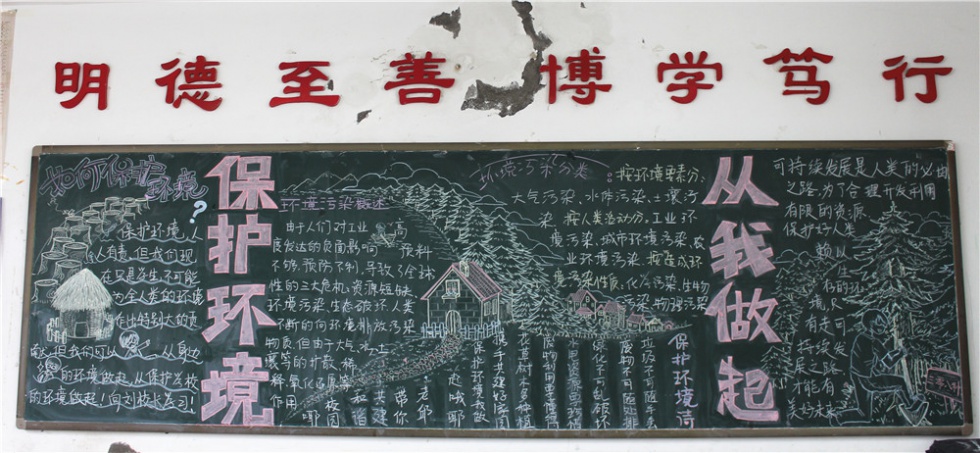 明德至善 博学笃行
如何保护环境?
保护环境,人
人有责,但我们现
在只是学生,不可能
为全人类的环境
作出特别大的贡
献,但我们可以从身边
的环境做起,从保护学校
的环境做起!向刘校长学习!
保护环境
环境污染概述
由于人们对工业
度发达的负面影响预料
不够,预防不利,导致了全球
性的三大危机:资源短缺
环境污染、生态破坏.人
不断的向环境排放污染
物质.但由于大气、水、土
壤等的扩散、稀
释、氧化还原等
作用
环境污染分类:
按环境要素分:
大气污染、水体污染、土壤污
染.按人类活动分:工业环
境污染、城市环境污染、农
业环境污染.按造成环
境污染性质:化学污染、生物
污染、物理污染
保护环境诗
垃圾不可随手丢
废物不可随处排
绿化不可乱破坏
废物利用
花草树木多种植
携手共建好家园
保护环境我做起
从我做起
可持续发展是人类的必由
之路,为了合理开发利用
有限的资源
保护好人类
赖以
生
存的环
境,只
有走可
持续发
展之路
才能有
美好未来